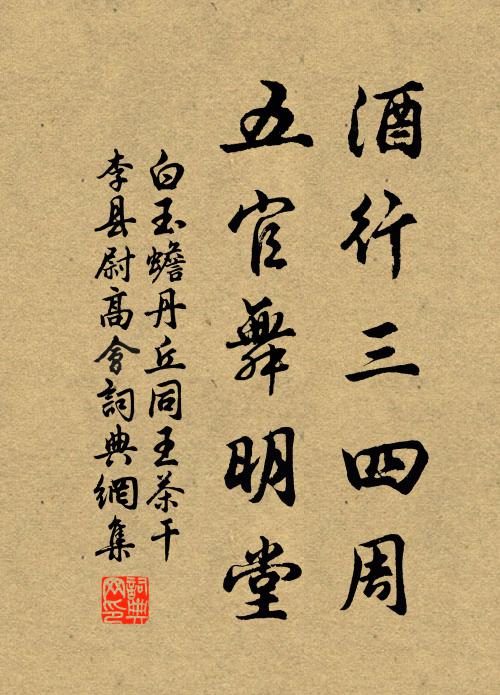 酒行三四周
五官舞明堂
白玉蟾丹丘同王茶干
李县尉高会詞典網集
詞典
网印